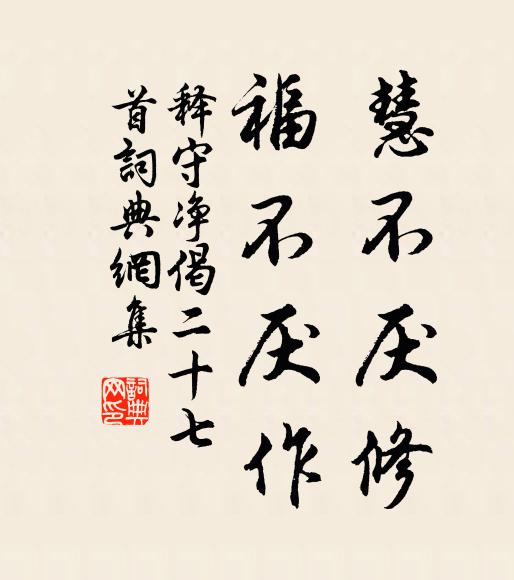 慧不厌修
福不厌作
释守净偈二十七
首詞典網集
詞典
网印